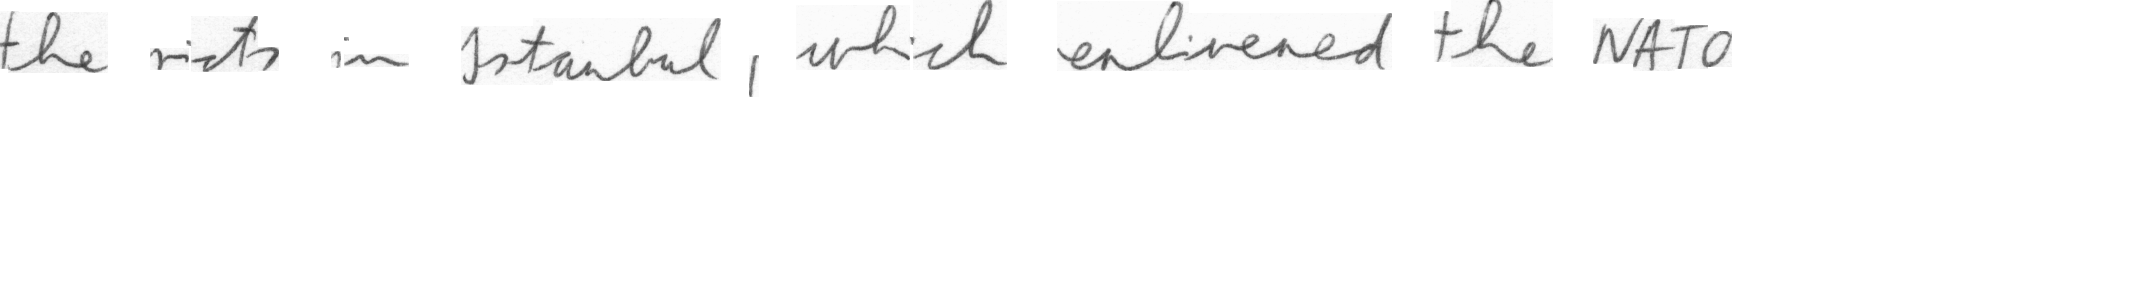 the riots in Istanbul, which enlivened the NATO